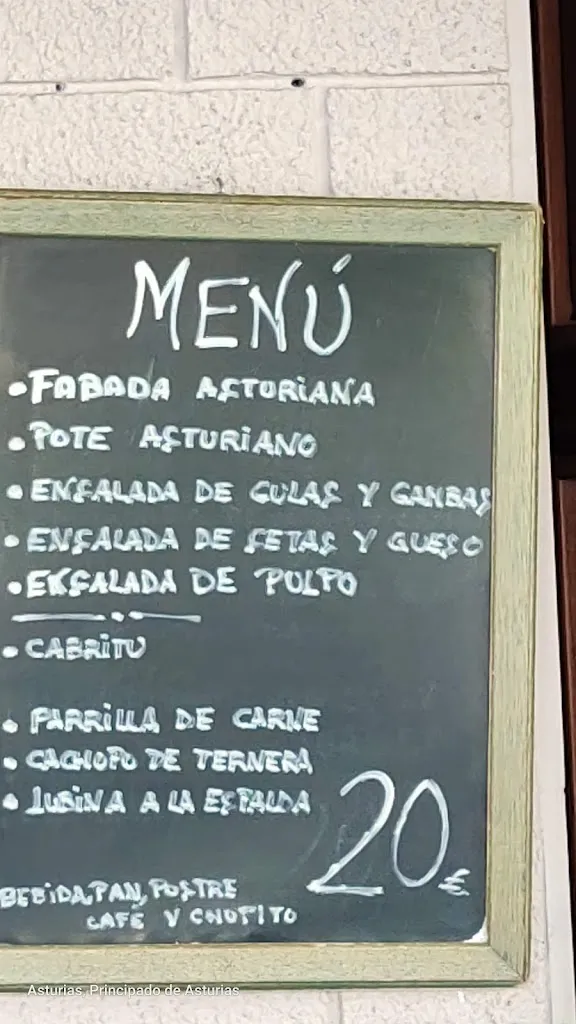 MENÚ
• FABADA ASTURIANA
• POTE ASTURIANO
• ENSALADA DE GULAS Y GAMBAS
• ENSALADA DE SETAS Y QUESO
• ENSALADA DE PULPO
• CABRITU
• PARRILLA DE CARNE
• CACHOPO DE TERNERA
• LUBINA A LA ESPALDA
20€
BEBIDA, PAN, POSTRE
CAFE Y CHUPITO
Asturias, Principado de Asturias